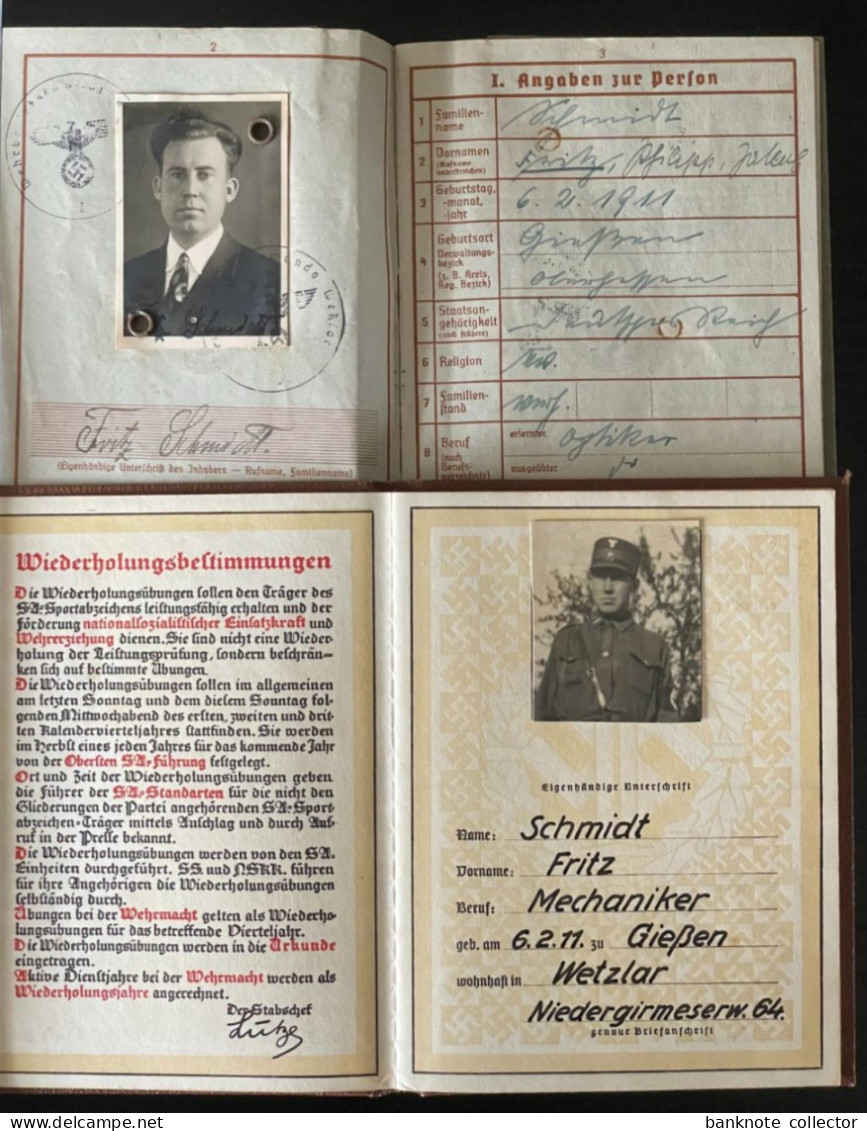 2
Schmidt
Fritz Schmidt.
(Eigenhändige Unterschrift des Inhabers — Rufname, Familienname)
3
I. Angaben zur Person
1 Familien-
name
Schmidt
2 Vornamen
(Rufname
unterstreichen)
Fritz, Philipp,
3 Geburtstag,
-monat,
-jahr
6. 2. 1911
4 Geburtsort
Verwaltungs-
bezirk
(z. B. Kreis,
Reg. Bezirk)
Gießen
Oberhessen
5 Staatsan-
gehörigkeit
(auch frühere)
Deutsches Reich
6 Religion
ev.
7 Familien-
stand
verh.
8 Beruf
(nach
Berufs-
verzeichnis)
erlernter
Optiker
ausgeübter
Wiederholungsbestimmungen
Die Wiederholungsübungen sollen den Träger des
SA-Sportabzeichens leistungsfähig erhalten und der
Förderung nationalsozialistischer Einsatzkraft und
Wehrerziehung dienen. Sie sind nicht eine Wieder-
holung der Leistungsprüfung, sondern beschrän-
ken sich auf bestimmte Übungen.
Die Wiederholungsübungen sollen im allgemeinen
am letzten Sonntag und dem diesem Sonntag fol-
genden Mittwochabend des ersten, zweiten und drit-
ten Kalendervierteljahres stattfinden. Sie werden
im Herbst eines jeden Jahres für das kommende Jahr
von der Obersten SA-Führung festgelegt.
Ort und Zeit der Wiederholungsübungen geben
die Führer der SA-Standarten für die nicht den
Gliederungen der Partei angehörenden SA-Sport-
abzeichen-Träger mittels Anschlag und durch Auf-
ruf in der Presse bekannt.
Die Wiederholungsübungen werden von den SA-
Einheiten durchgeführt. SS und NSKK führen
für ihre Angehörigen die Wiederholungsübungen
selbständig durch.
Übungen bei der Wehrmacht gelten als Wiederho-
lungsübungen für das betreffende Vierteljahr.
Die Wiederholungsübungen werden in die Urkunde
eingetragen.
Aktive Dienstjahre bei der Wehrmacht werden als
Wiederholungsjahre angerechnet.
Der Stabschef
Lutze
Eigenhändige Unterschrift
Name: Schmidt
Vorname: Fritz
Beruf: Mechaniker
geb. am 6.2.11. zu Gießen
wohnhaft in Wetzlar
Niedergirmeserw. 64.
genaue Briefanschrift
banknote collector